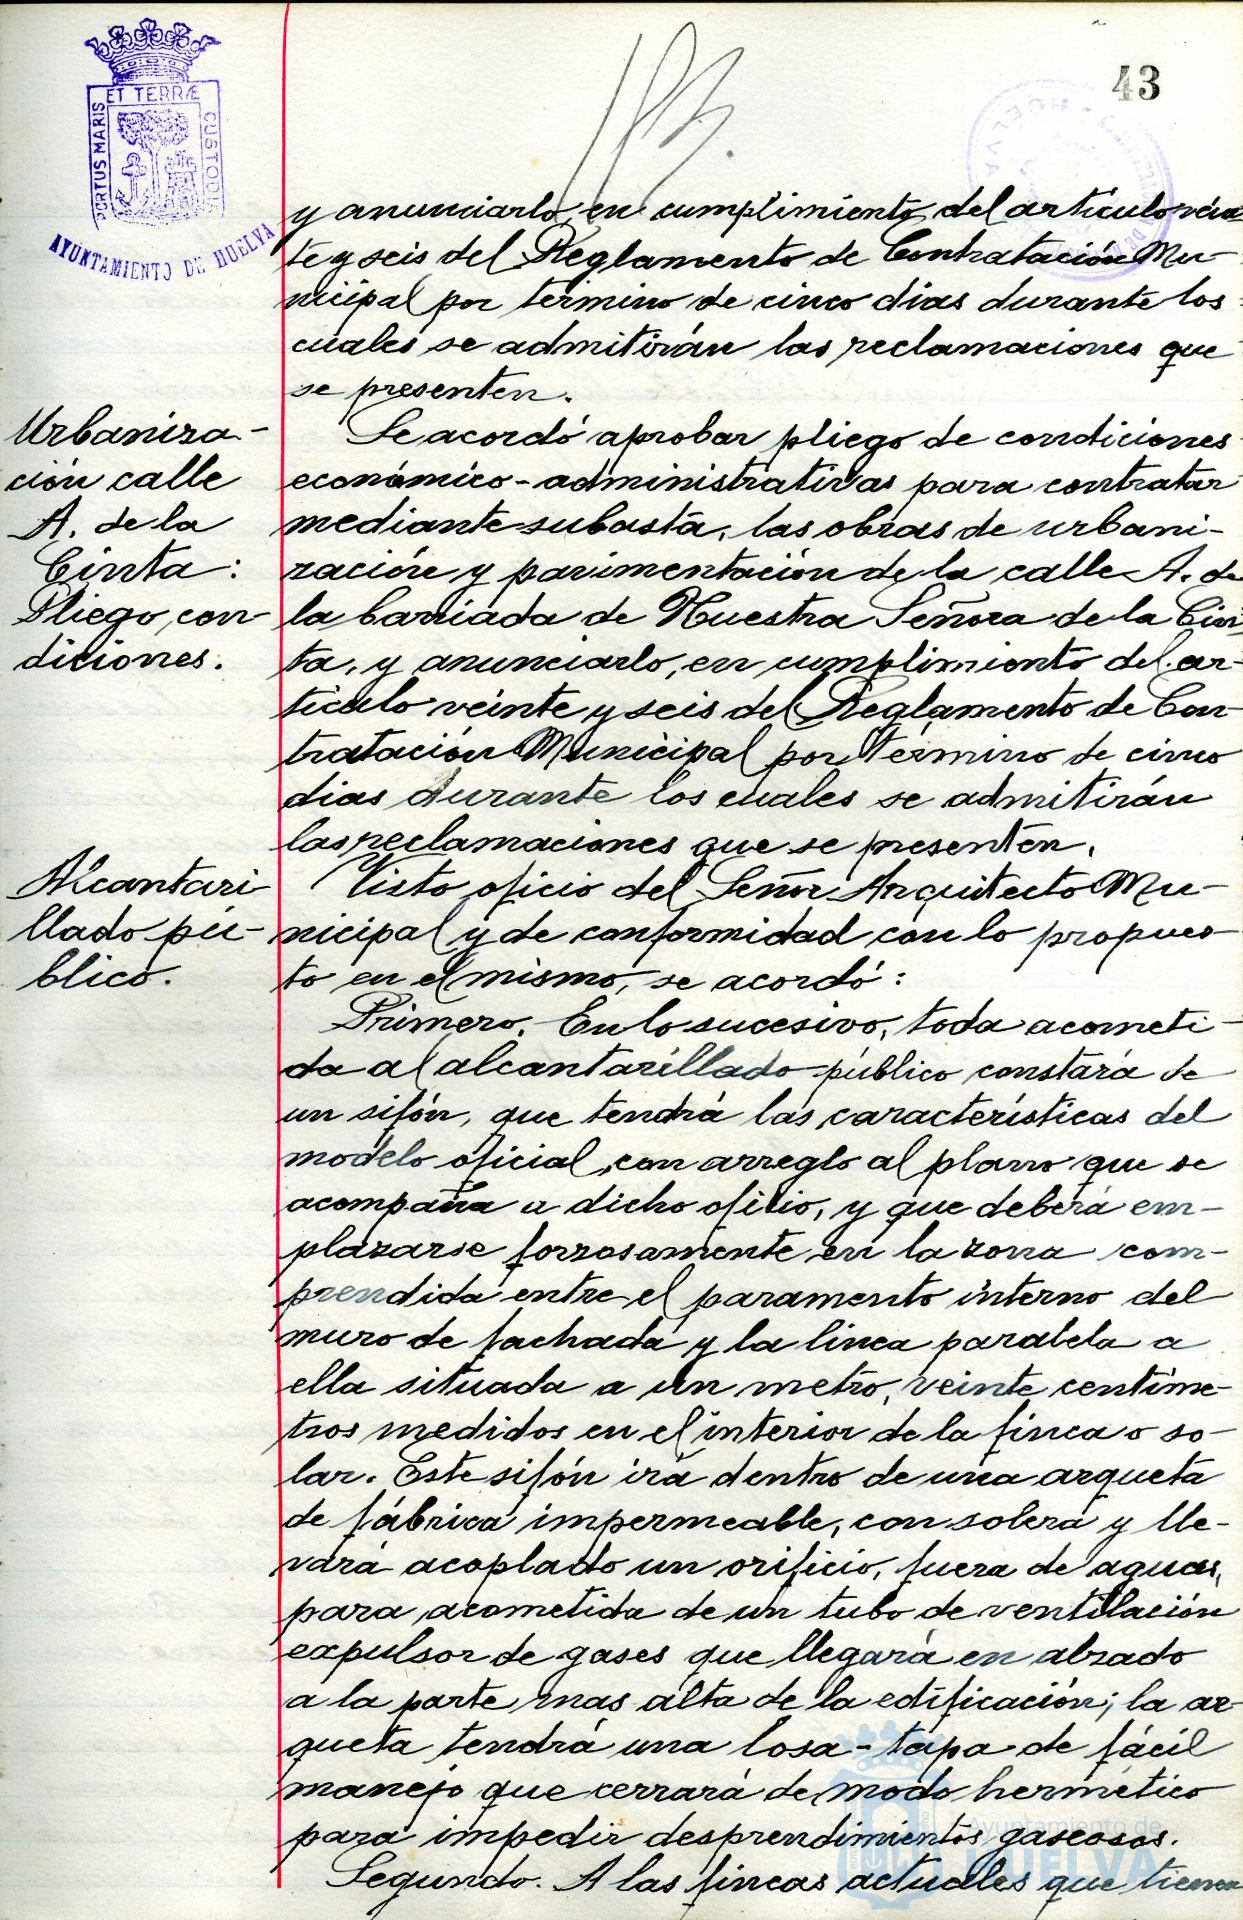 43
PORTUS MARIS ET TERRÆ CUSTODIA
AYUNTAMIENTO DE HUELVA
HUELVA
y anunciarlo, en cumplimiento, del artículo vein
te y seis del Reglamento de Contratación Mu-
nicipal por término de cinco dias durante los
cuales se admitirán las reclamaciones que
se presenten.
Urbaniza-
ción calle
A. de la
Cinta:
Pliego, con-
diciones.
Se acordó aprobar pliego de condiciones
económico-administrativas para contratar
mediante subasta, las obras de urbani-
zación y pavimentación de la calle A. de
la barriada de Nuestra Señora de la Cin
ta, y anunciarlo, en cumplimiento del ar-
tículo veinte y seis del Reglamento de Con-
tratación Municipal por término de cinco
dias durante los cuales se admitirán
las reclamaciones que se presenten.
Alcantari
llado pú-
blico.
Visto oficio del Señor Arquitecto Mu-
nicipal y de conformidad con lo propues-
to en el mismo, se acordó:
Primero. En lo sucesivo, toda acometi-
da al alcantarillado público constará de
un sifón, que tendrá las características del
modelo oficial, con arreglo al plano que se
acompaña a dicho oficio, y que deberá em-
plazarse forzosamente en la zona com-
prendida entre el paramento interno del
muro de fachada y la linea paralela a
ella situada a un metro, veinte centíme-
tros medidos en el interior de la finca o so-
lar. Este sifón irá dentro de una arqueta
de fábrica impermeable, con solera y lle-
vará acoplado un orificio, fuera de aguas,
para acometida de un tubo de ventilación
expulsor de gases que llegará en alzado
a la parte mas alta de la edificación; la ar-
queta tendrá una losa-tapa de fácil
manejo que cerrará de modo hermético
para impedir desprendimientos gaseosos.
Segundo. A las fincas actuales que tienen
Ayuntamiento de
HUELVA